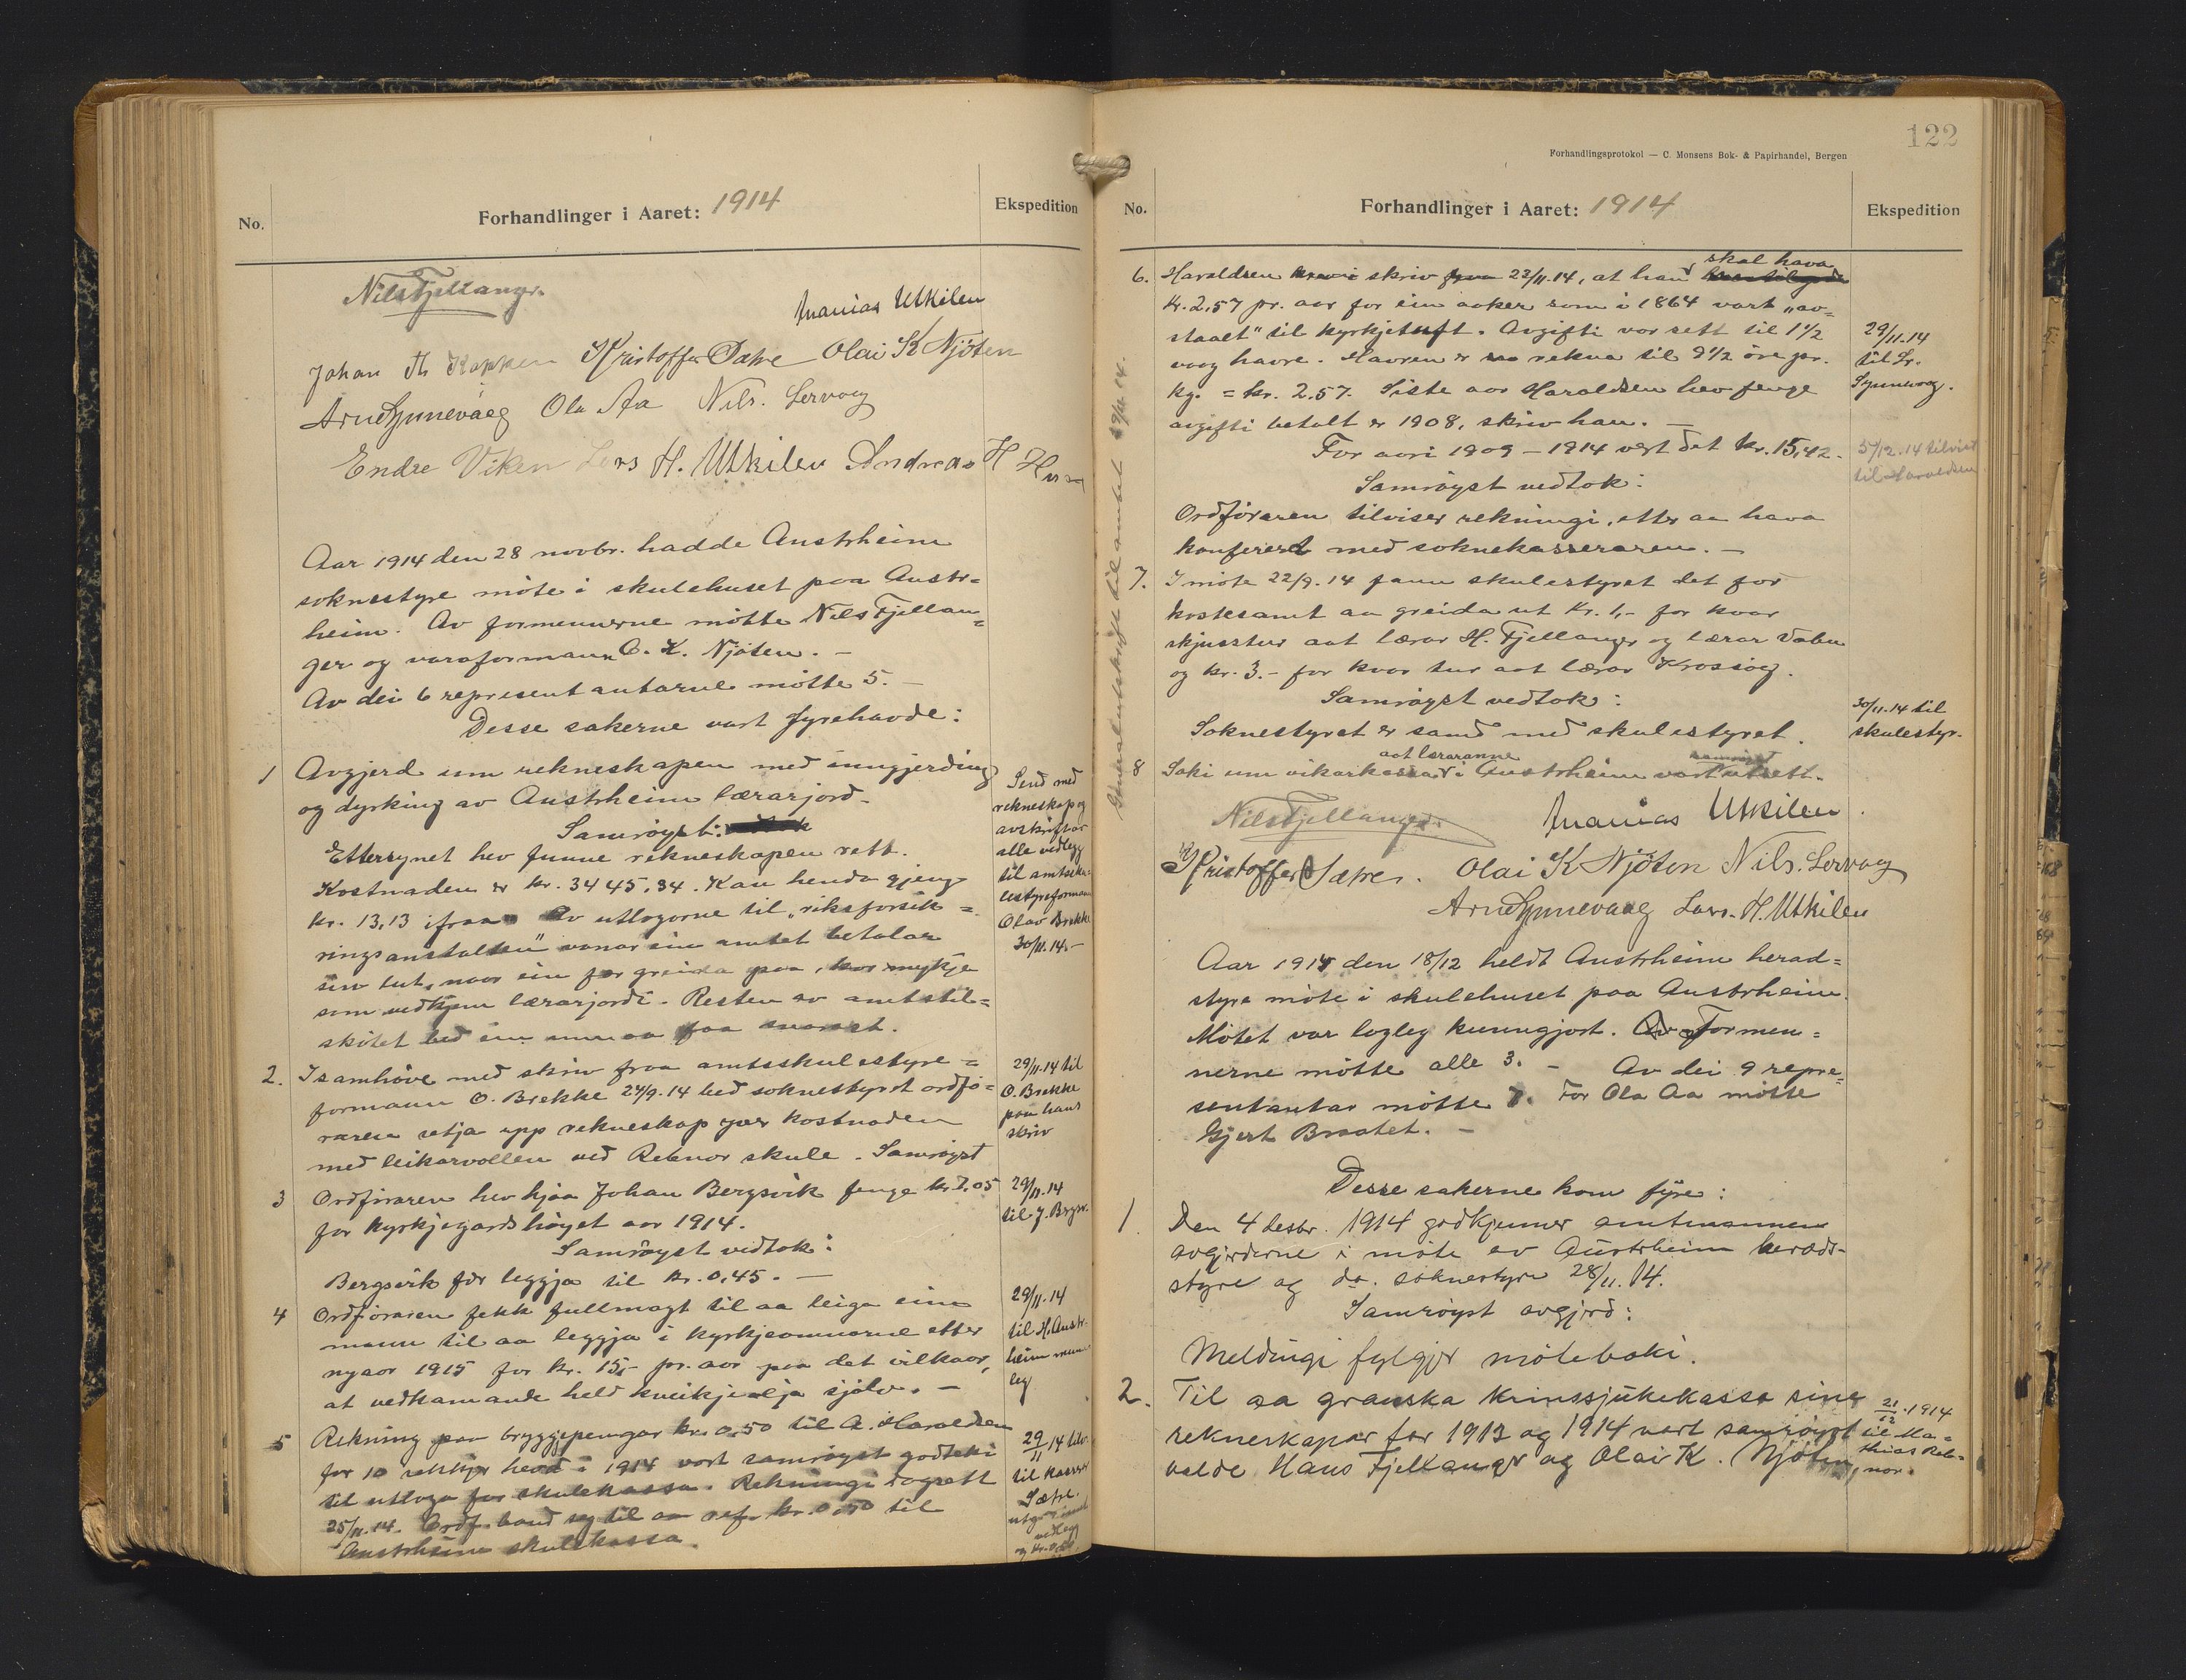 No.
Forhandlinger i Aaret: 1914
Ekspedition
Nils Fjellanger
Ananias Utkilen
Johan Th Koppen Kristoffer Sætre Olai K Njöten
Arne Synnevaag Ola Aa Nils. Lervaag
Endre Viken Lars H. Utkilen Andreas H
Aar 1914 den 28 novbr. hadde Austrheim
soknestyre möte i skulehuset paa Austr=
heim. Av formennerne mötte Nils Fjellan=
ger og varaformann O. K. Njöten. -
Av dei 6 representantarne mötte 5. -
Desse sakerne vart fyrehavde:
1 Avgjerd um rekneskapen med inngjerding
og dyrking av Austrheim lærarjord.
Samröyst:
Ettersynet hev funne rekneskapen rett.
Kostnaden er kr. 3445,34. Kan henda gjeng
kr. 13,13 ifraa. Av utlogorne til "riksforsik=
ringsanstalten" vonar ein amtet betalar
sin lut, naar ein fær greida paa, kor mykje
som vedkjem lærarjordi. Resten av amtstil=
skotet bed ein um aa faa snarast.
Send med
rekneskap og
avskriftar
alle vedlegg
til amtssku-
lestyreformann
Olav Brekke
30/11.14.-
2. I samhöve med skriv fraa amtsskulestyre=
formann O. Brekke 24/9.14 bed soknestyret ordfö=
raren setja upp rekneskap yver kostnaden
med leikarvollen ved Rebnor skule. Samröyst
29/11.14 til
O. Brekke
paa hans
skriv
3 Ordföraren hev hjaa Johan Bergsvik fenge kr. 7.05
for kyrkjegardshöyet aar 1914.
Samröyst vedtok:
Bergsvik fær leggja til kr. 0,45. -
29/11.14
til J. Bergsv.
4 Ordföraren fekk fullmagt til aa leiga ein
mann til aa leggja i kyrkjeomnarne etter
nyaar 1915 for kr. 15,- pr. aar paa det vilkaar,
at vedkomande held kveikjeolja sjölv. -
29/11.14
til H. Austr-
heim munn-
leg
5 Rekning paa bryggjepengar kr. 0,50 til A. Haraldsen
for 10 sekkjer i 1914 vart samröyst godteki
til utlogo for skulekassa. Rekningi dagsett
25/11.14. Ordf. baud seg til aa ref. kr. 0,50 til
Austrheim skulekassa.
29/11 14 tilv.
til kasser
Sætre.
vedlegg
122
Forhandlingsprotokol — C. Monsens Bok- & Papirhandel, Bergen
No.
Forhandlinger i Aaret: 1914
Ekspedition
6. Haraldsen krev i skriv fraa 22/11.14, at han skal hava
kr. 2,57 pr. aar for ein aaker som i 1864 vart "av=
staatt" til kyrkjetuft. Avgifti var sett til 1½
vaag havre. Havren er rekna til 9½ öre pr.
kg. = kr. 2,57. Siste aar Haraldsen hev fenge
avgifti betalt er 1908, skriv han. -
For aari 1909 - 1914 vert det kr. 15,42.
Samröyst vedtok:
Ordföraren tilviser rekningi, etter aa hava
konfereret med soknekasseraren. -
29/11.14
til Kr.
Synnevaag.
5/12.14 tilvist
til Haraldsen
7. I möte 22/9.14 fann skulestyret det for
kostesamt aa greida ut kr. 1,- for kvar
skjusstur aat lærar H. Fjellanger og lærar Vabø
og kr. 3.- for kvar tur aat lærar Krossöy.
Samröyst vedtok:
Soknestyret er samd med skulestyret.
30/11.14 til
skulestyr.
8 Saki um vikarkassa aat læraranne i Austrheim vart samröyst utsett.
Generalutskrift til amtet 29/11 14.
Nils Fjellanger Ananias Utkilen
Kristoffer Sætre. Olai K Njöten Nils. Lervaag
Arne Synnevaag Lars. H. Utkilen
Aar 1914 den 18/12 heldt Austrheim herad=
styre möte i skulehuset paa Austrheim.
Mötet var logleg kunngjort. Av Formen=
nerne mötte alle 3. - Av dei 9 repre=
sentantar mötte 7. For Ola Aa mötte
Gjert Braatet. -
Desse sakerne kom fyre:
1. Den 4 desbr. 1914 godkjenner amtmannen
avgjerderne i möte av Austrheim herads-
styre og do. soknestyre 28/11.14.
Samröyst avgjerd:
Meldingi fylgjer möteboki.
2. Til aa granska krinssjukekassa sine
rekneskapar for 1913 og 1914 vart samröyst
valde Hans Fjellanger og Olai K. Njöten.
21/12.1914
til Ma=
thias Reb=
nor.